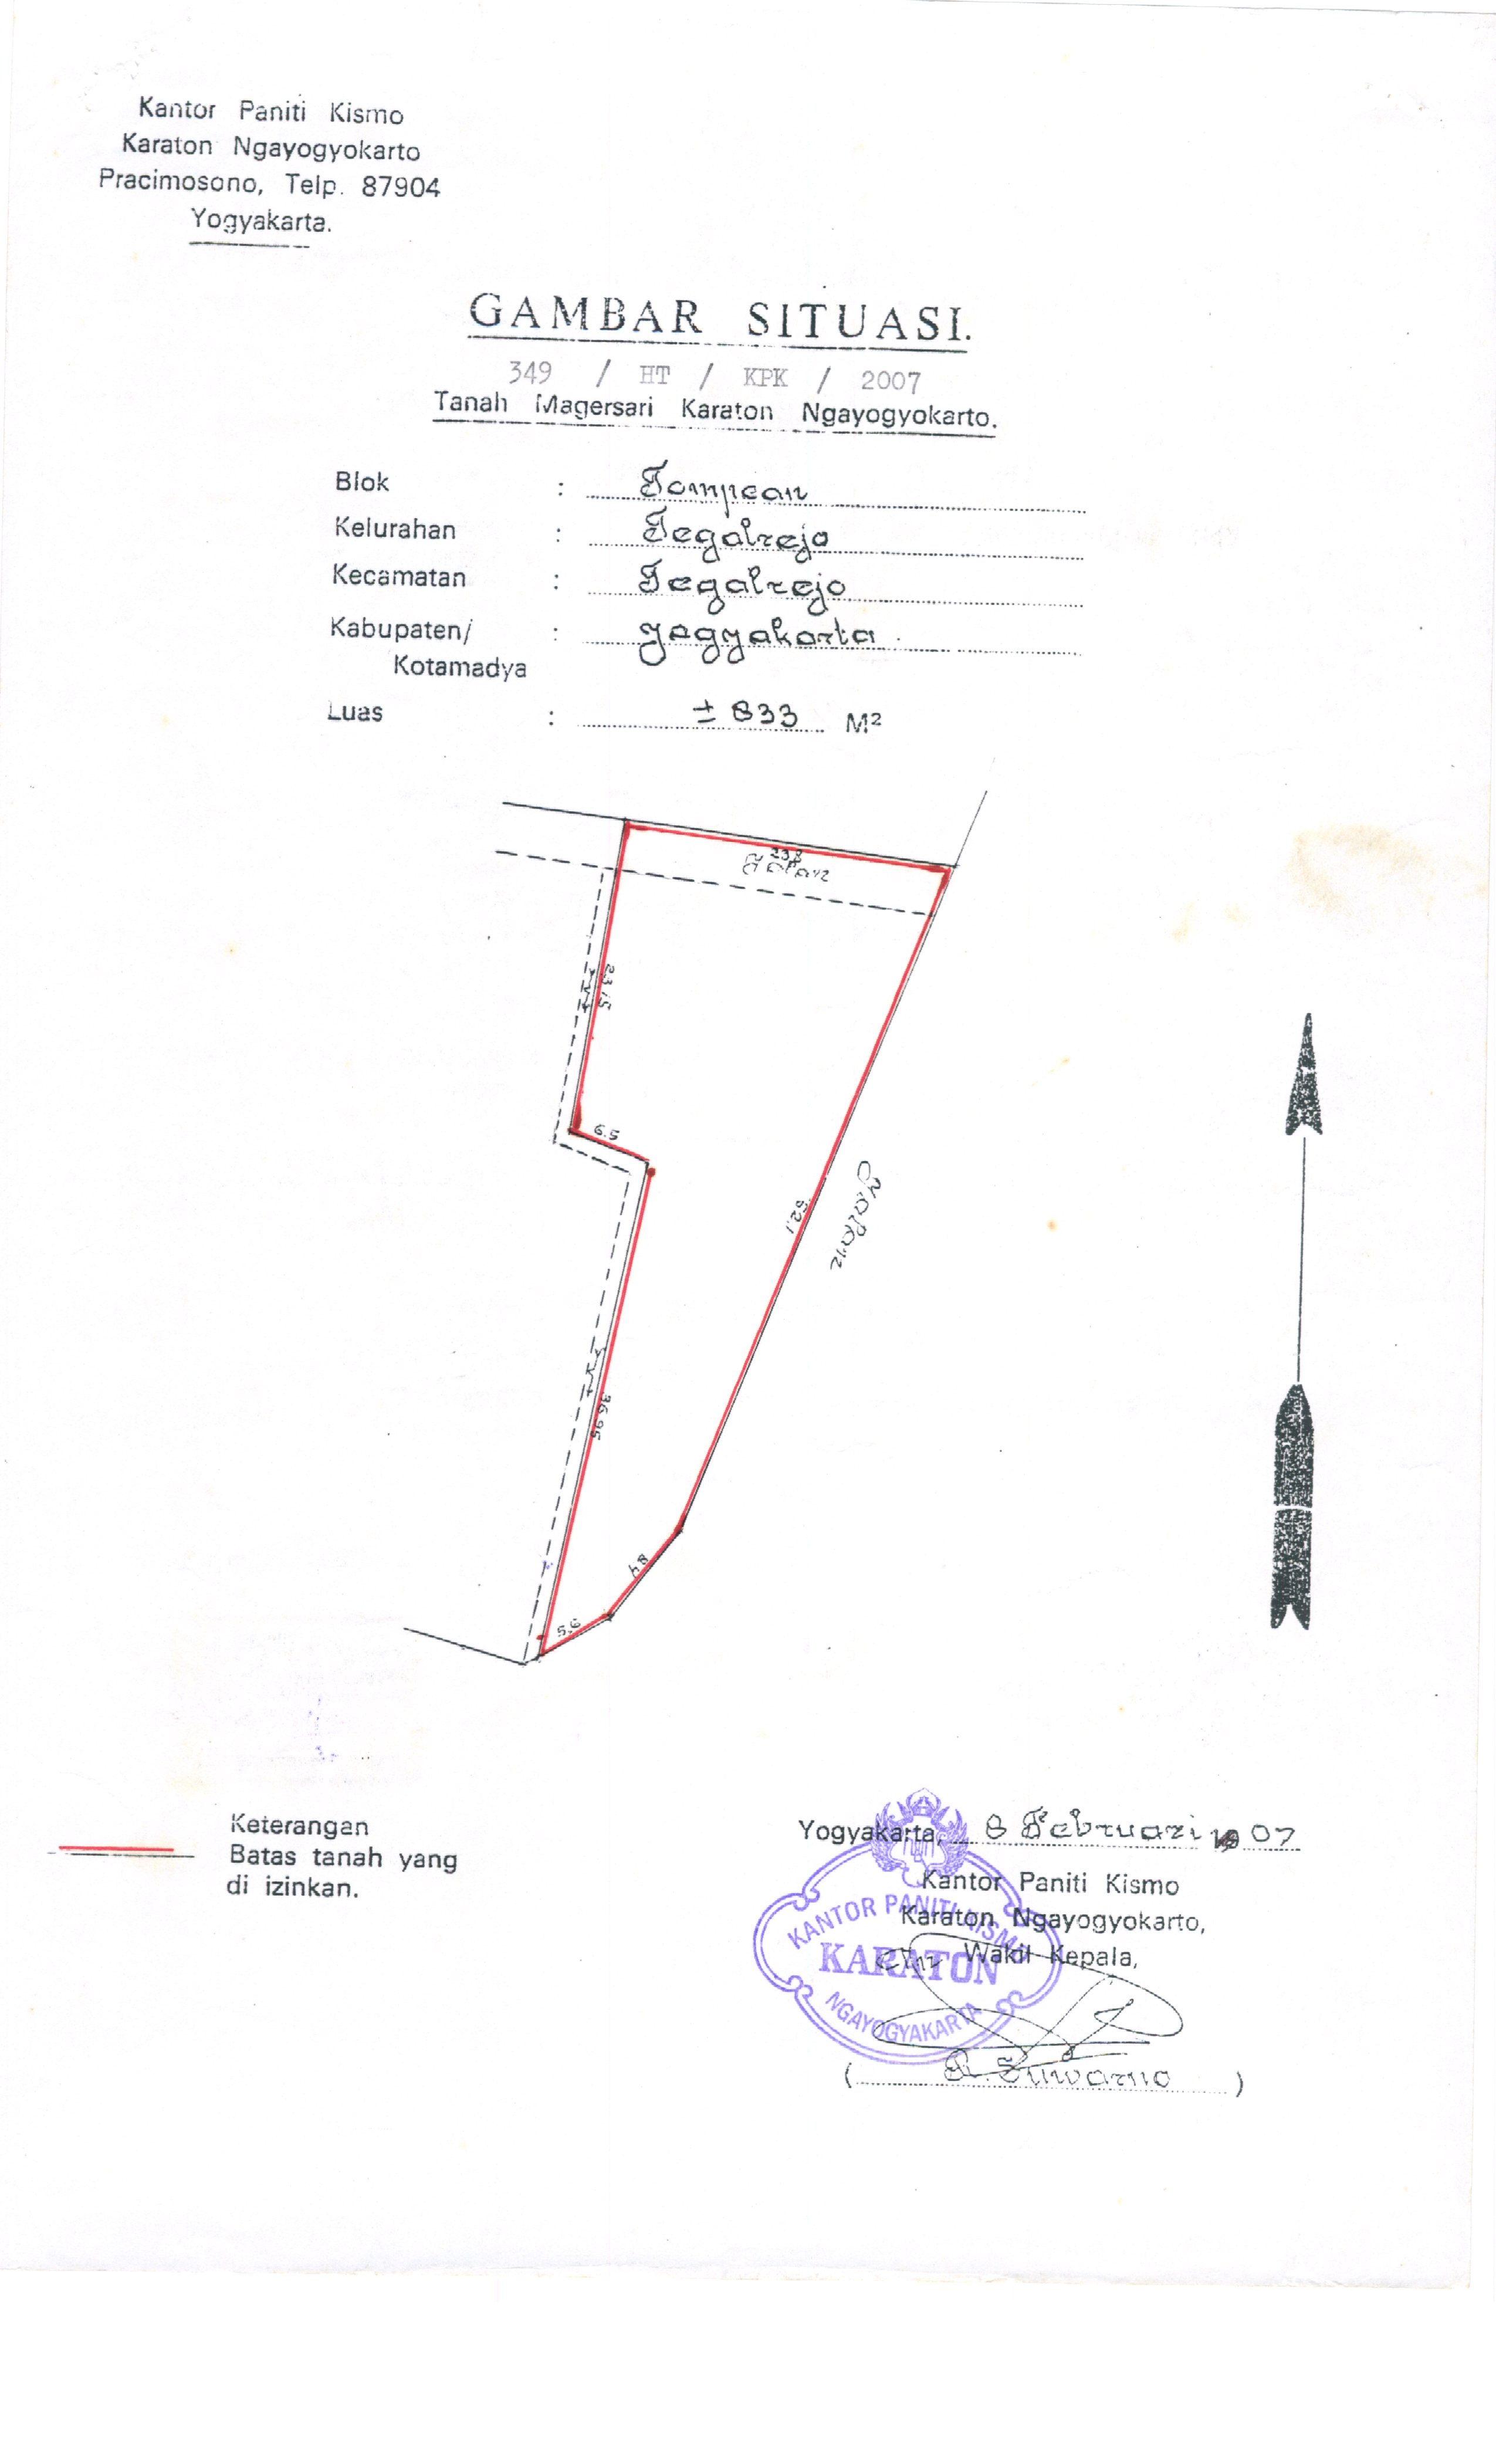 Kantor Paniti Kismo
Karaton Ngayogyokarto
Pracimosono, Telp. 87904
Yogyakarta.
GAMBAR SITUASI.
349 / HT / KPK / 2007
Tanah Magersari Karaton Ngayogyokarto.
Blok : Tompean
Kelurahan : Tegalrejo
Kecamatan : Tegalrejo
Kabupaten/ : Yogyakarta.
Kotamadya
Luas : ± 833 M²
23,8
Jalan
23,15
6.5
Jalan
52,1
36,95
8,4
5,9
Keterangan
Batas tanah yang
di izinkan.
Yogyakarta, 8 Februari 07
Kantor Paniti Kismo
Karaton Ngayogyokarto,
Wakil Kepala,
KANTOR PANITI KISMO
KARATON
NGAYOGYAKARTA
( R. Suwarno )